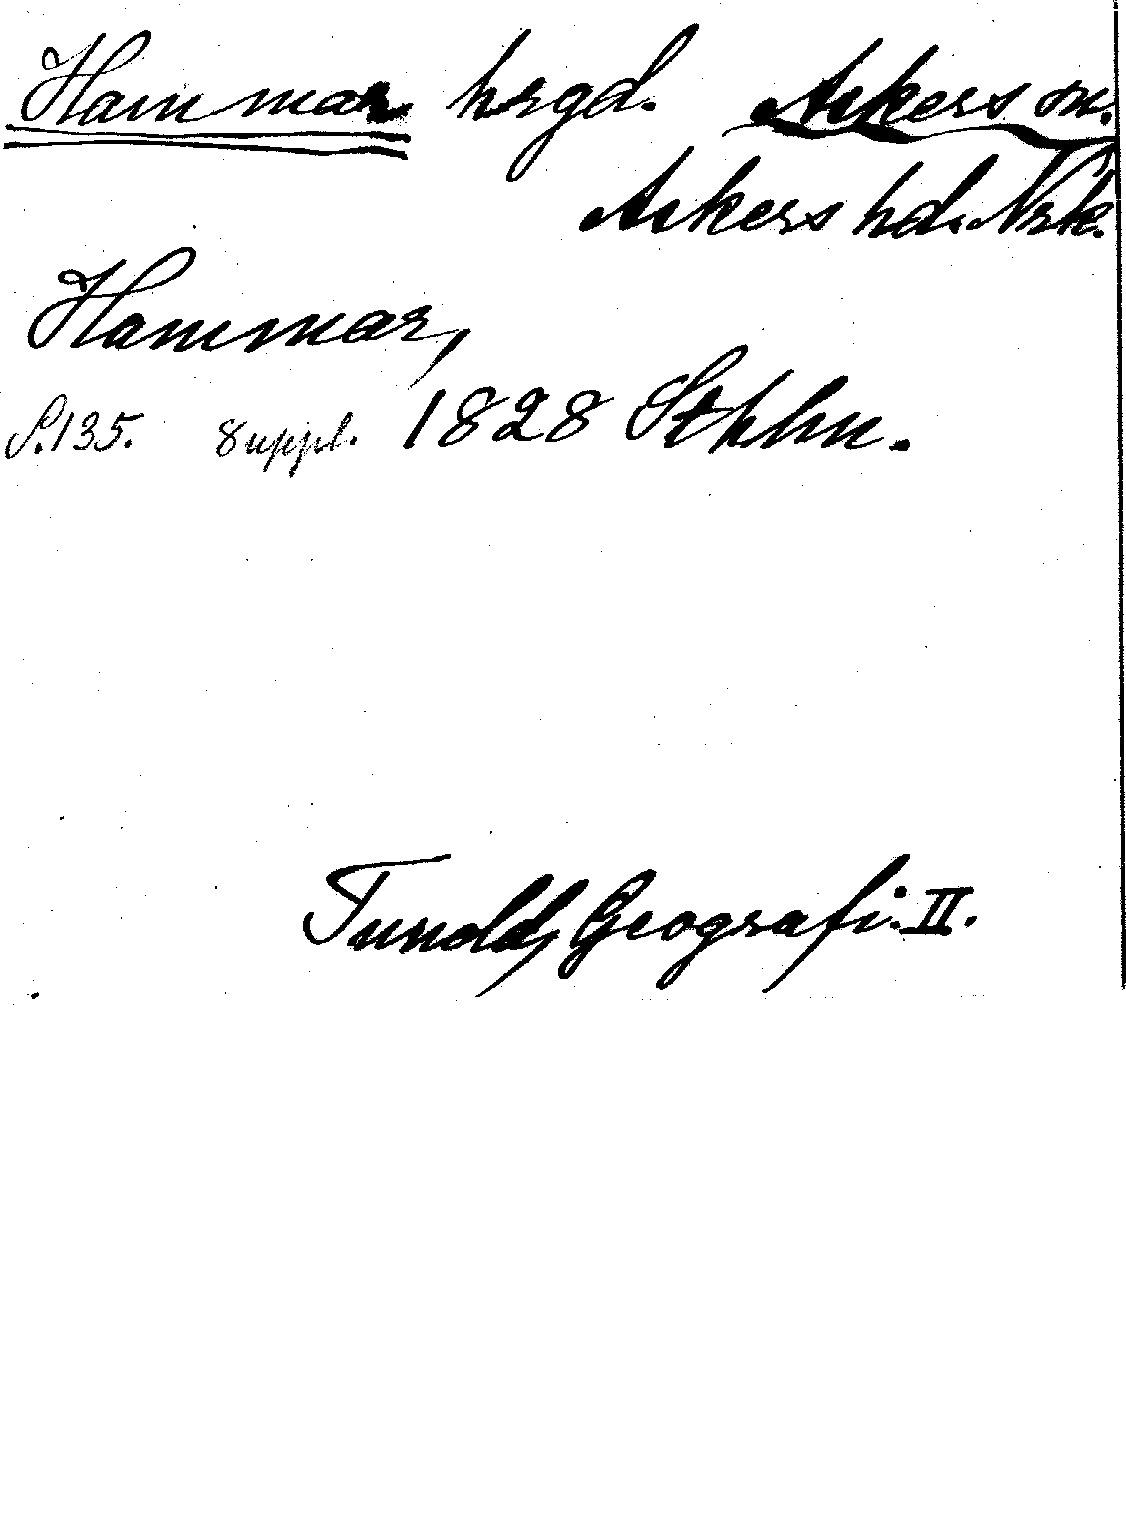 Hammar hrgd. Askers sn.
Askers hd. Nrk.
Hammar,
S. 135. Suppl. 1828 Sthlm.
Tuneld, Geografi. II.